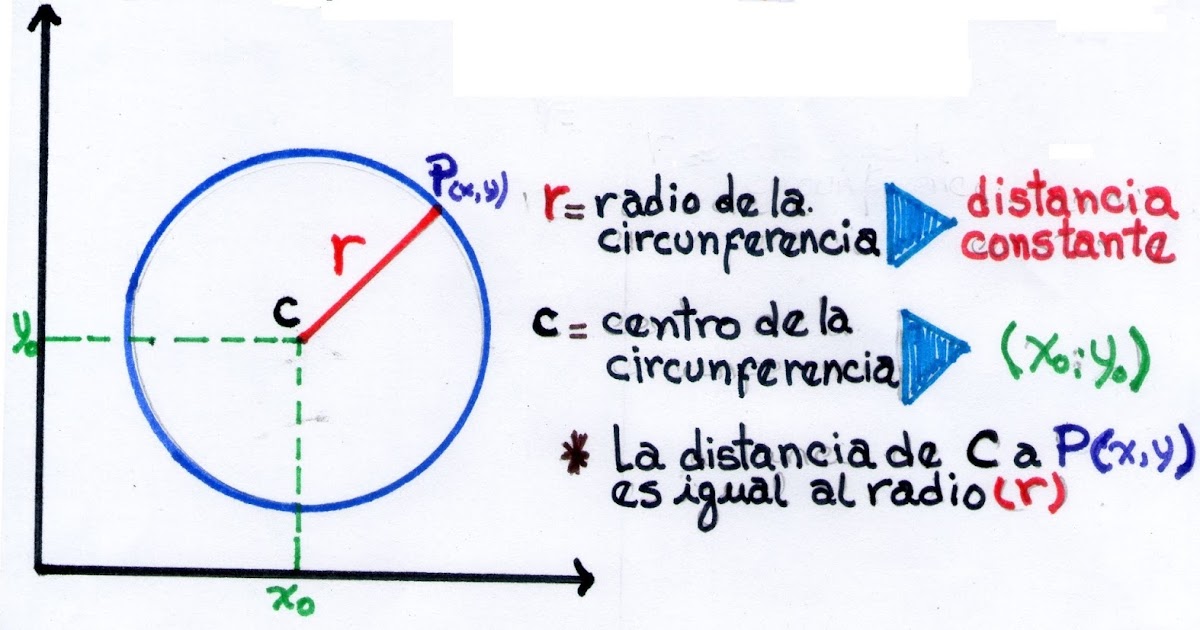 P(x,y)
r
C
y₀
x₀
r = radio de la.
circunferencia
distancia
constante
C = centro de la
circunferencia
(x₀; y₀)
* La distancia de C a P(x,y)
es igual al radio (r)